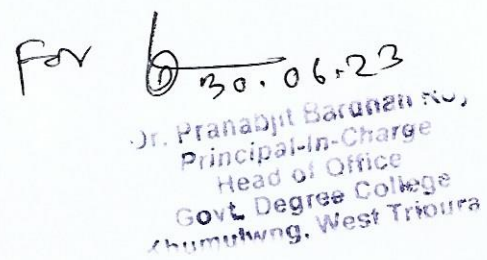 For
30.06.23
Dr. Pranabjit
Principal-In-Charge
Head of Office
Govt. Degree College
Khumulwng, West Tripura